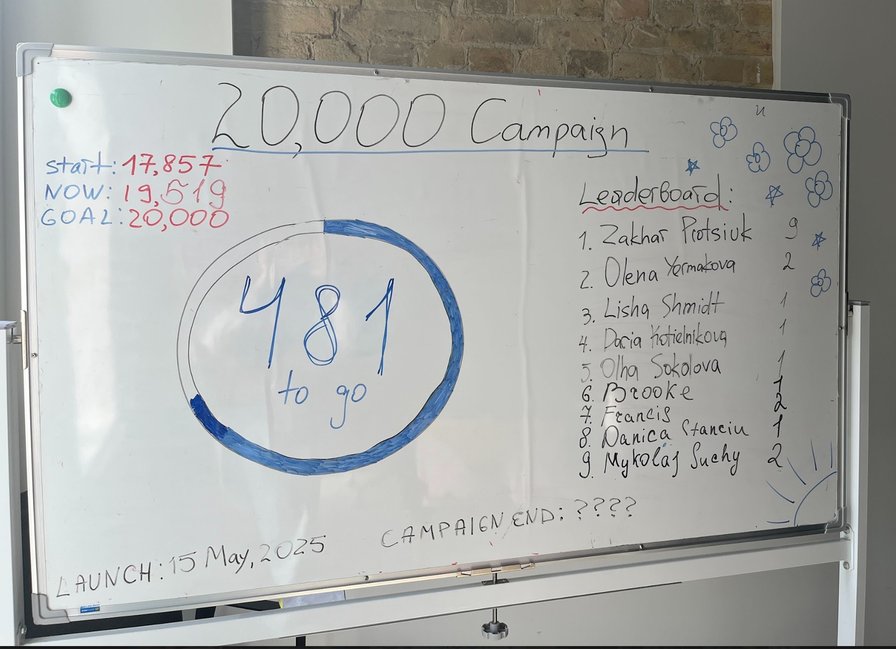 20,000 Campaign
start: 17,857
NOW: 19,519
GOAL: 20,000
481
to go
Leaderboard:
1. Zakhar Protsiuk 9
2. Olena Yermakova 2
3. Lisha Shmidt 1
4. Daria Kotielnikova 1
5. Olha Sokolova 1
6. Brooke 1
7. Francis 2
8. Danica Stanciu 1
9. Mykolaj Suchy 2
CAMPAIGN END: ????
LAUNCH: 15 May, 2025